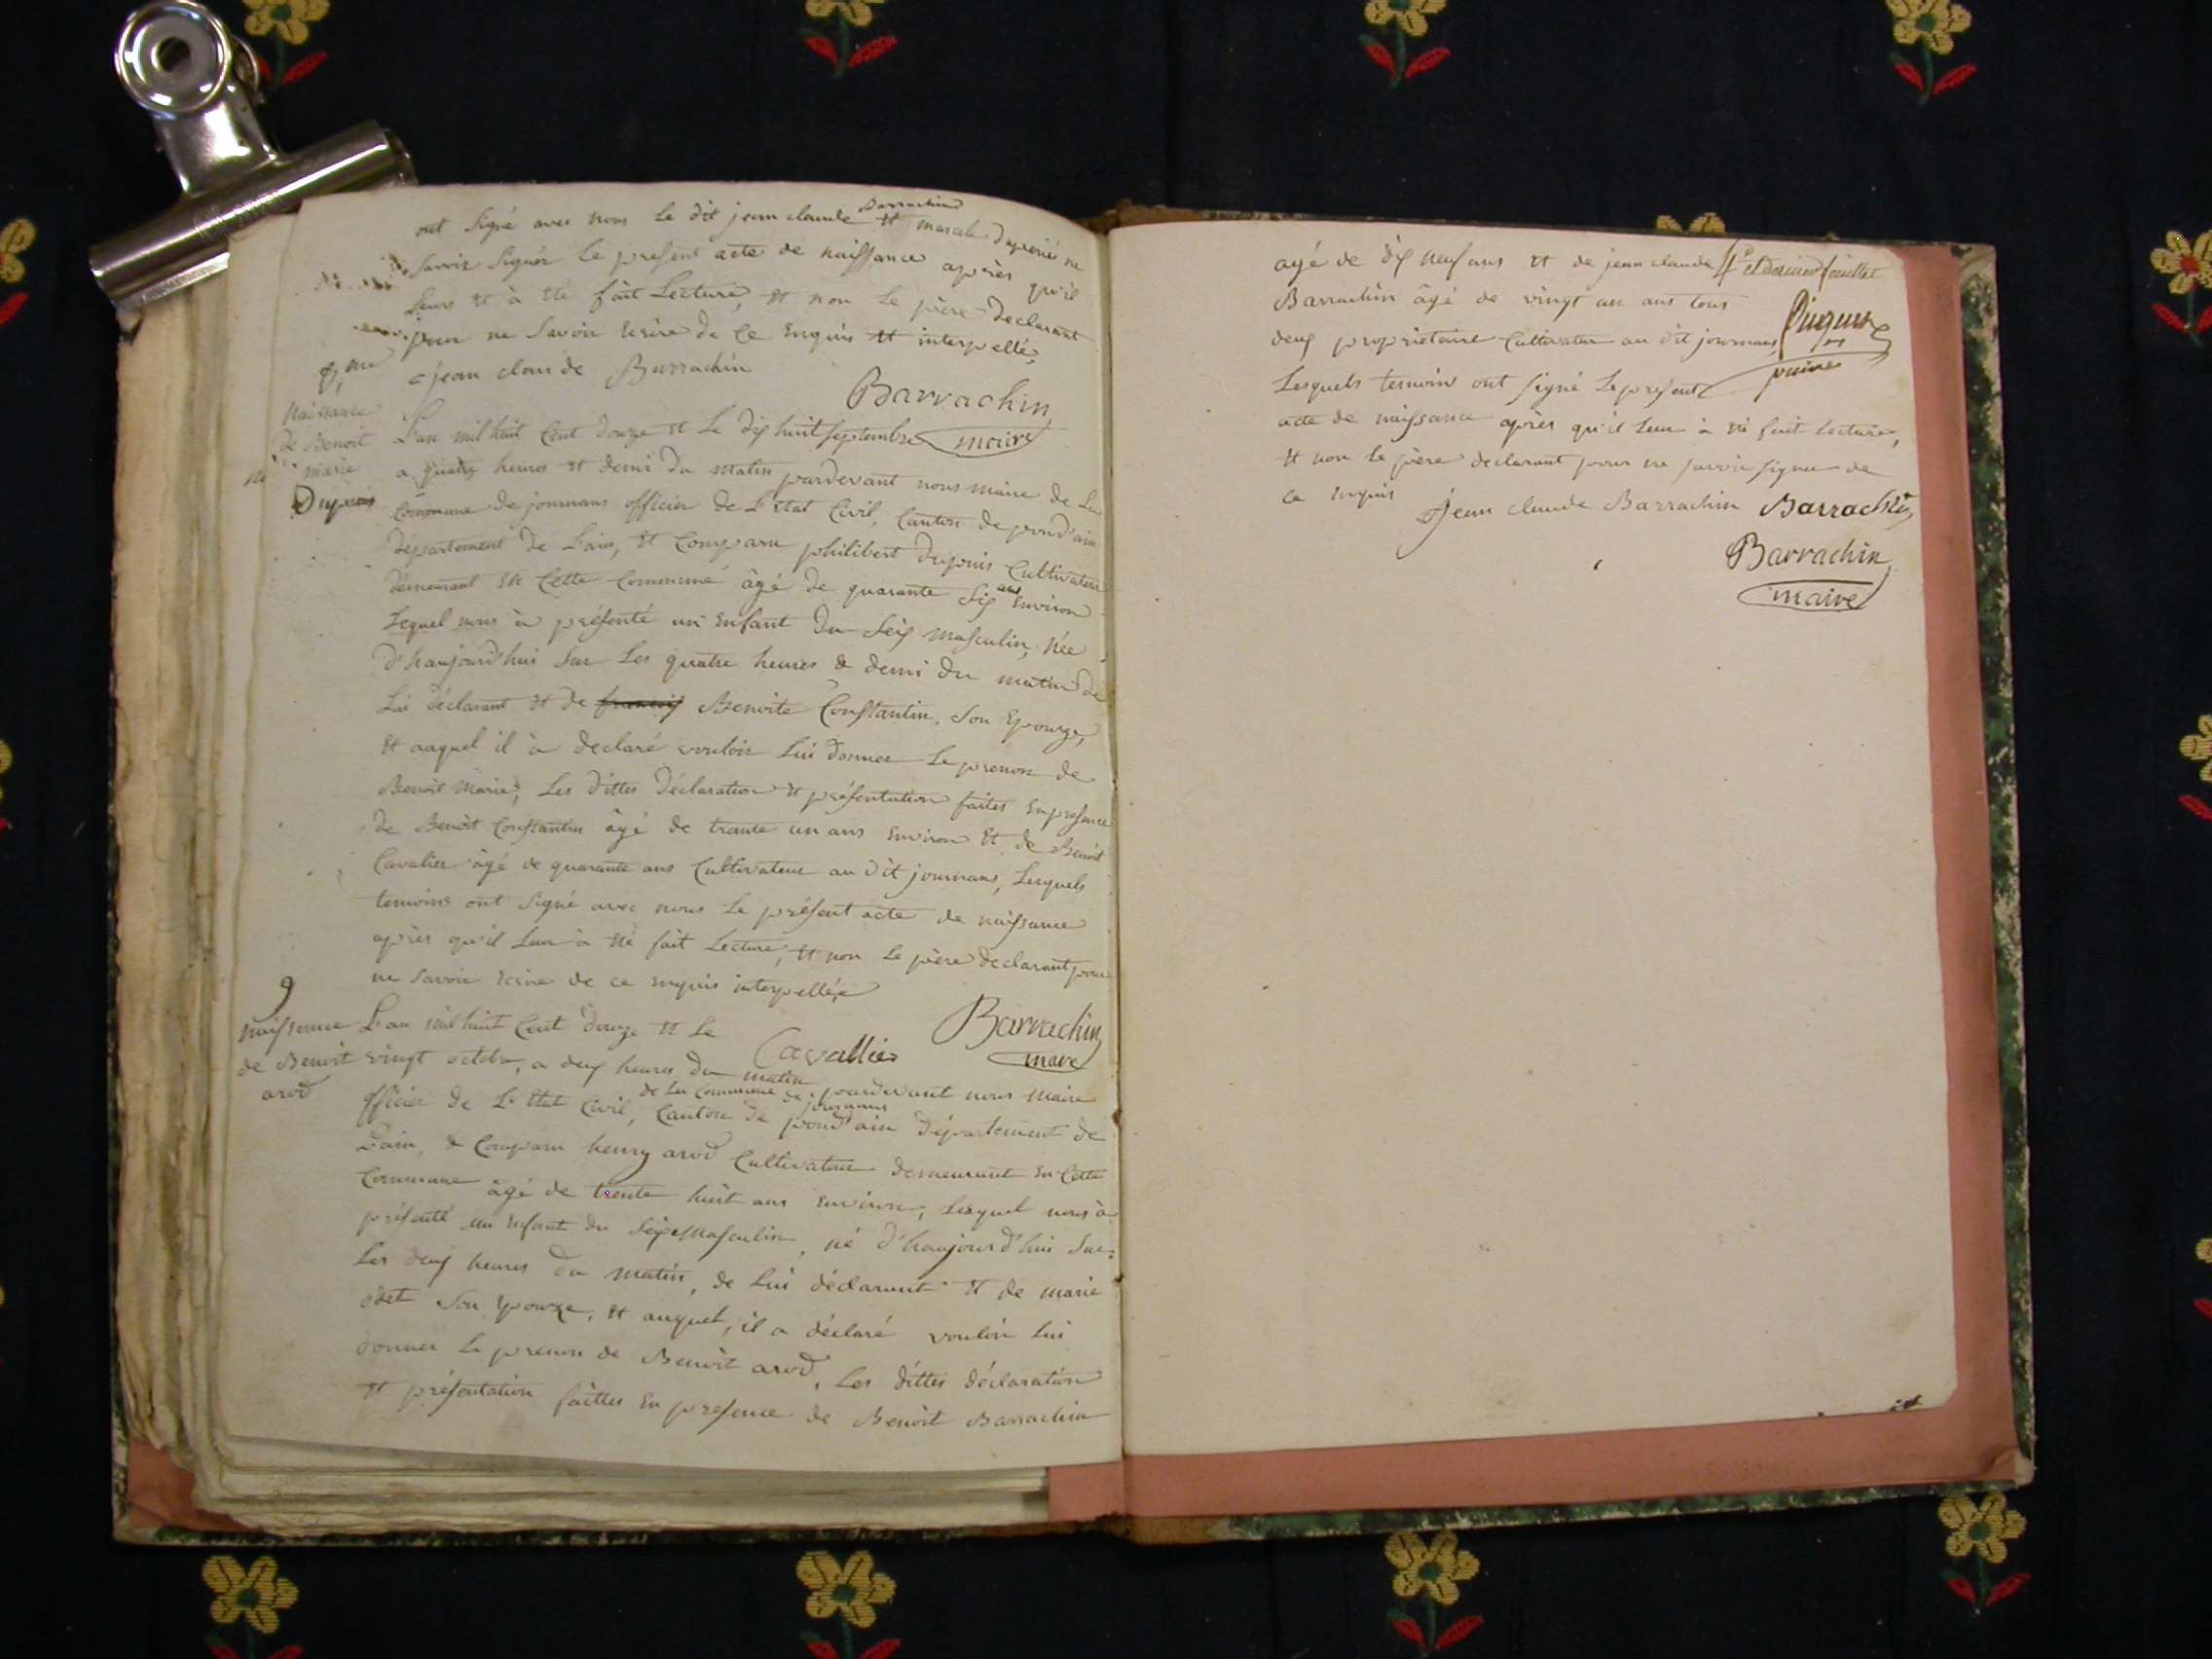 ont signé avec nous le dit jean claude Barrachin et
savoir signér le present acte de naissance après qu'il
leurs et à été fait Lecture, et non le père declarant
pour ne savoir ecrire de ce enquis et interpellé,
jean claude Barrachin
Barrachin
maire
8,me
naissance
de Benoit
marie
Dupuis
L'an mil huit Cent douze et le dix huit septembre
a quatre heures et demi du matin pardevant nous maire de La
Commune de journans officier de L'état Civil, Canton de pond'ain
département de L'ain, et Comparu philibert dupuis Cultivateur
démeurant en Cette Commune âgé de quarante six ans environ
Lequel nous à présenté un enfant du seix masculin, née
d'haujourd'hui sur les quatre heures & demi du matin de
Lui déclarant et de Benoite Constantin, son epouze,
et auquel il à declaré vouloir lui donner Le prenon de
Benoit Marie, Les dittes déclaration et présentation faites en presence
de Benoit Constantin âgé de trante un ans environ et de Benoit
Cavalier âgé de quarante ans Cultivateur au dit journans, Lesquels
temoins ont signé avec nous le présent acte de naissance
après qu'il leur à été fait Lecture, et non le père declarant pour
ne savoir ecrire de ce enquis interpellée
Barrachin
maire
Cavallier
9
naissance
de Benoit
arod
L'an mil huit Cent douze et le
vingt octobre, a deux heures du matin pardevant nous maire
officier de L'état Civil, de la Commune de journans Canton de pond'ain département de
L'ain, & Comparu henry arod Cultivateur demeurant en Cette
Commune âgé de trente huit ans environ, Lequel nous à
présenté un enfant du seixe masculin, né d'haujourd'hui sur
les deux heures du matin, de lui déclarant et de marie
odet son epouze, et auquel, il a déclaré vouloir lui
donner le prenon de Benoit arod, Les dittes déclaration
et présentation faittes en presence de Benoit Barrachin
agé de dix neuf ans et de jean claude
Barrachin âgé de vingt un ans tous
deux propriétaire Cultivateur au dit journans,
Lesquels temoin ont signé le present
acte de naissance après qu'il leur à été fait Lecture,
et non le père declarant pour ne savoir signer de
ce enquis
4e et dernier feuillet
jean claude Barrachin Barrachin
Barrachin
maire